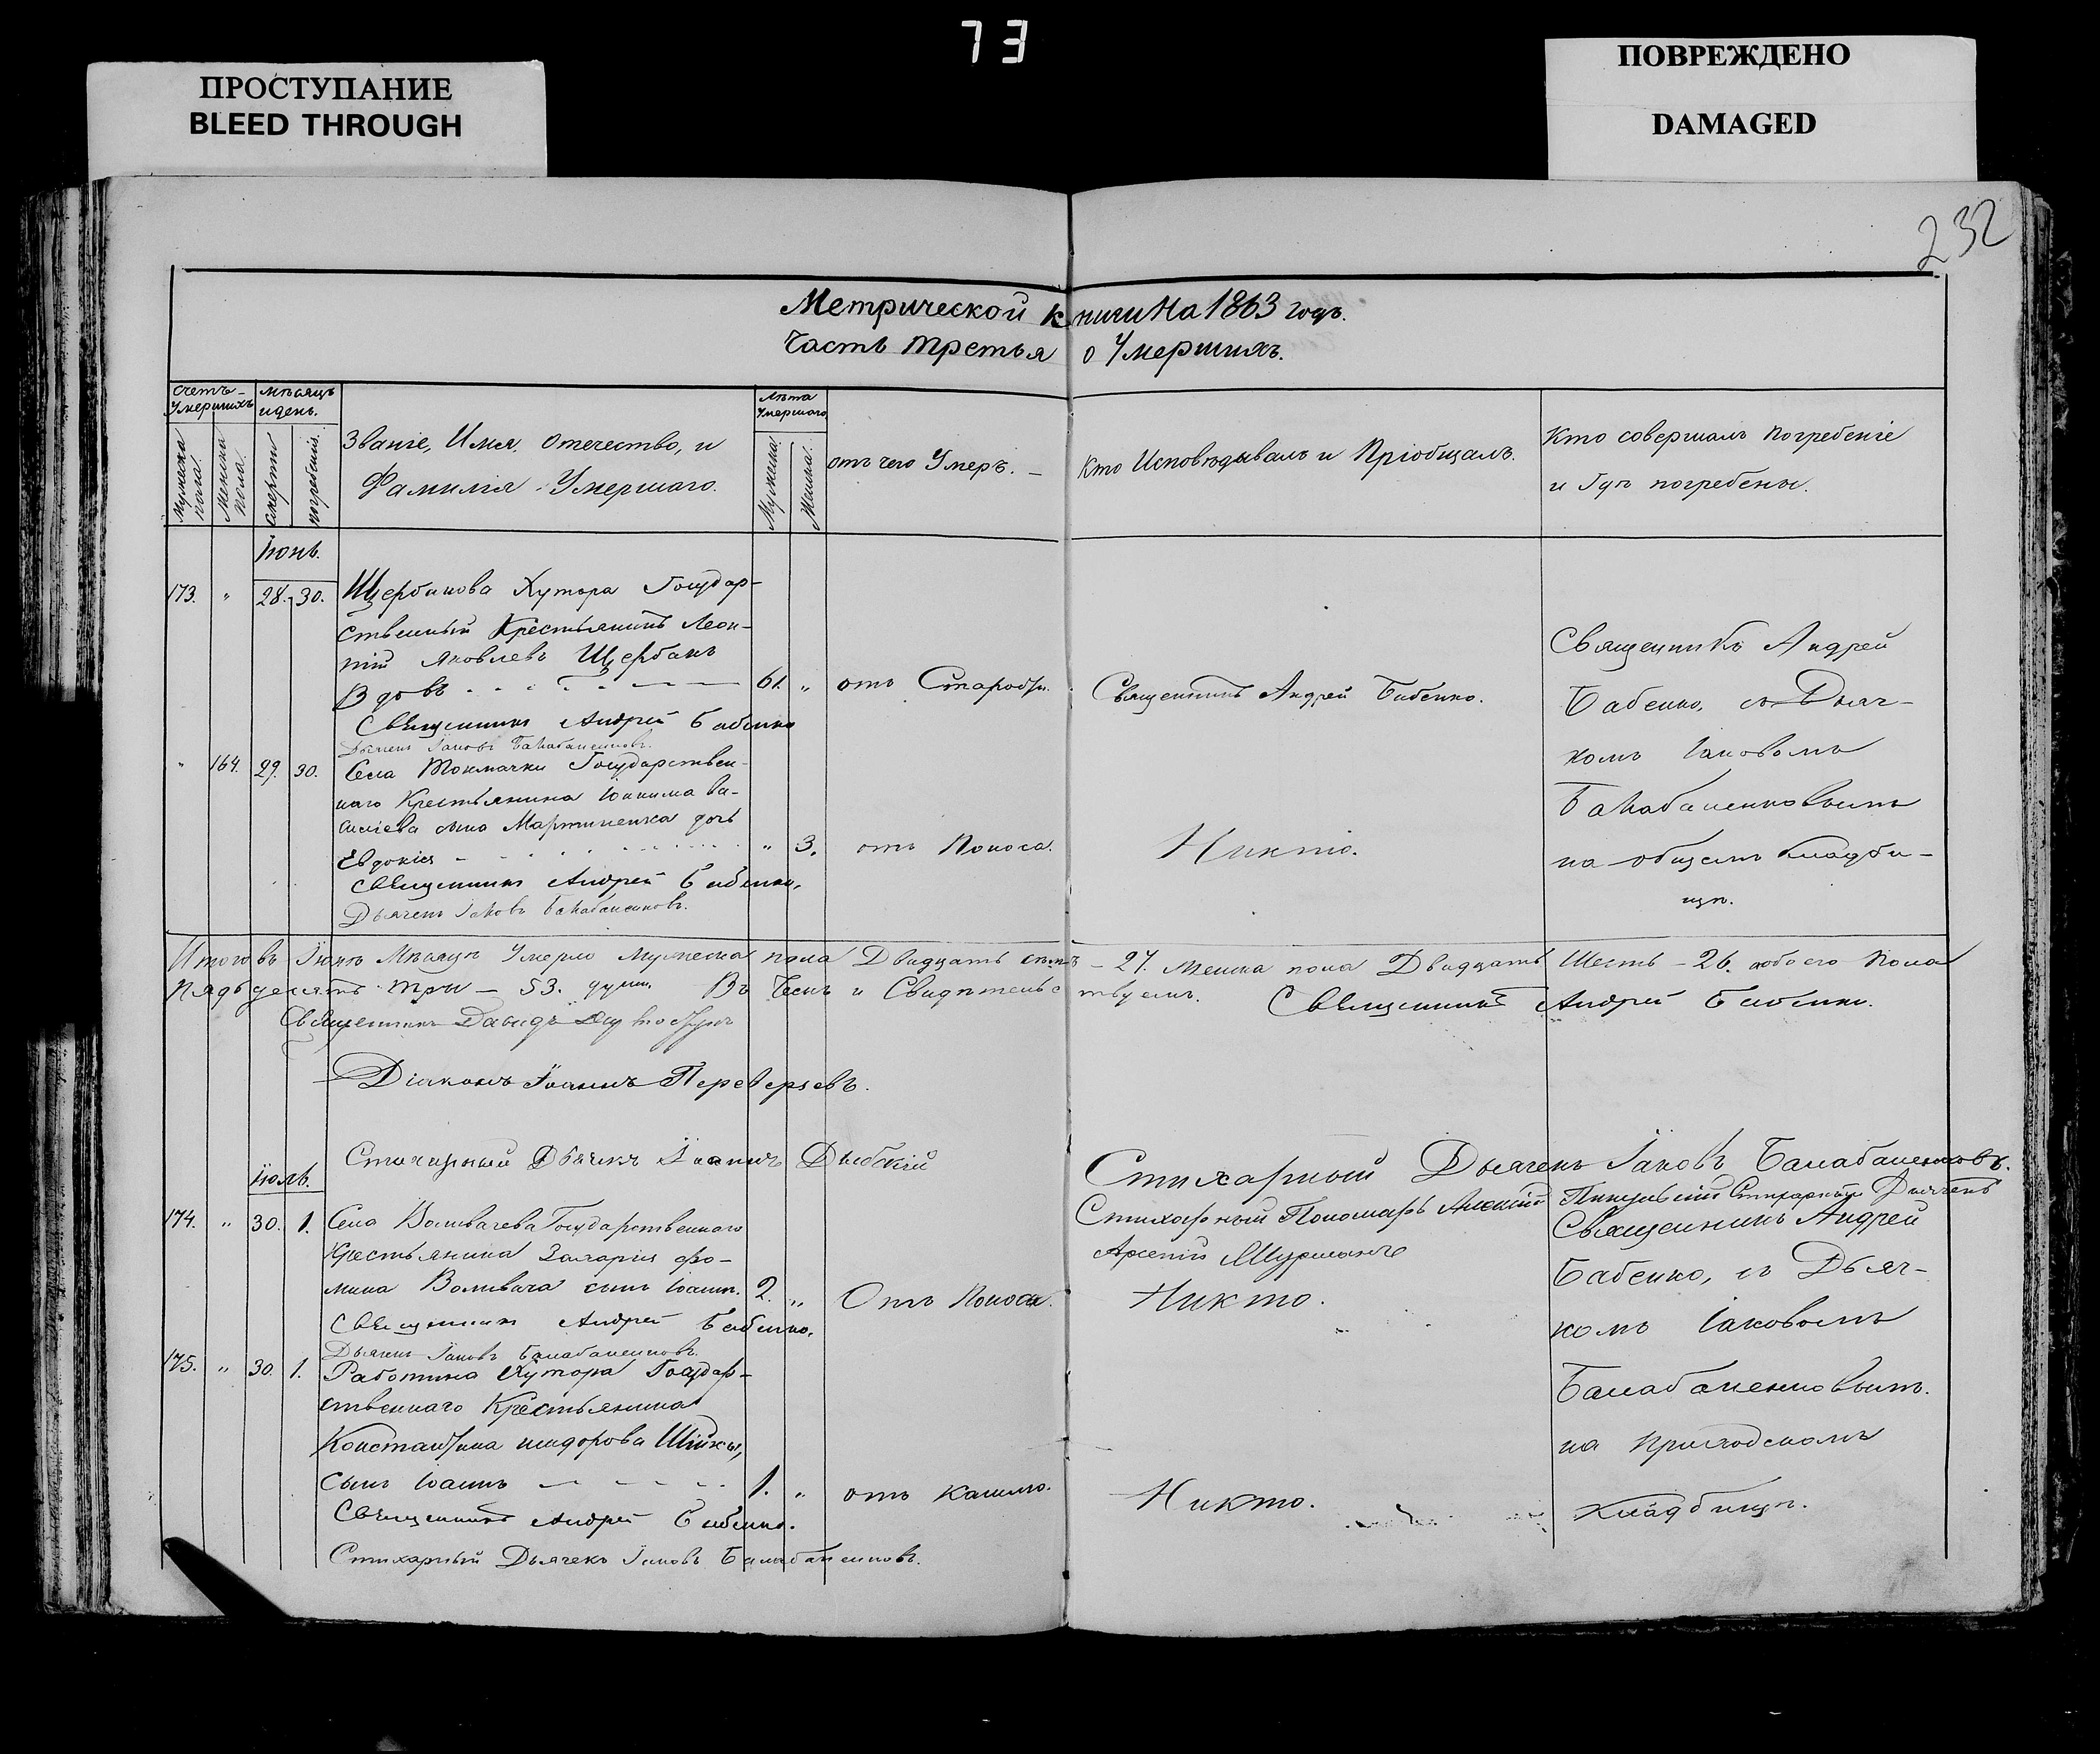 73
ПРОСТУПАНИЕ
BLEED THROUGH
ПОВРЕЖДЕНО
DAMAGED
232
Метрической книги На 1863 годъ.
Часть третья о Умершихъ.
Счетъ Умершихъ
Мужеска пола.
Женска пола.
Мѣсяцъ и день.
Смерти
погребенія.
Званіе, Имя, Отечество, и
Фамилія Умершаго.
Лѣта Умершаго
Мужеска.
Женска.
отъ чего Умеръ.
Кто Исповѣдывалъ и Пріобщалъ.
Кто совершалъ погребеніе
и Гдѣ погребены.
Іюнь.
173. " 28. 30. Щербакова Хутора Государ-
ственный Крестьянинъ Леон-
тій Яковлевъ Щербакъ
Вдовъ 61. " отъ Старости. Священникъ Андрей Бабенко.
Священникъ Андрей Бабенко
Дьячекъ Іаковъ Балабаненковъ.
Священникъ Андрей
Бабенко, съ Дьяч-
комъ Іаковомъ
Балабаненковымъ
на общемъ кладби-
щѣ.
" 164. 29. 30. Села Токмачки Государствен-
наго Крестьянина Іоакима Ва-
силіева сына Мартиненка дочь
Евдокія " 3. отъ Поноса. Никто.
Священникъ Андрей Бабенко.
Дьячекъ Іаковъ Балабаненковъ.
Итого въ Іюнѣ Мѣсяцѣ Умерло Мужеска пола Двадцать семъ - 27. Женска пола Двадцать Шесть - 26. обоего Пола
Пядьдесятъ три - 53. души. Въ Чемъ и Свидѣтельствуемъ. Священникъ Андрей Бабенко.
Священникъ Давидъ
Діаконъ Іоаннъ Переверзевъ.
Стихарный Дьячекъ Іоаннъ
Стихарный Дьячекъ Іаковъ Балабаненковъ.
Стихарный Пономарь
Стихарный Дьячекъ
Арсеній
Іюль.
174. " 30. 1. Села Государственнаго
Крестьянина Захарія Фо-
мина сынъ Іоаннъ. 2. " Отъ Поноса. Никто.
Священникъ Андрей Бабенко.
Дьячекъ Іаковъ Балабаненковъ.
Священникъ Андрей
Бабенко, съ Дьяч-
комъ Іаковомъ
Балабаненковымъ.
на Приходскомъ
Кладбищѣ.
175. " 30. 1. Работина Хутора Государ-
ственнаго Крестьянина
Константина
сынъ Іоаннъ 1. " отъ Кашлю. Никто.
Священникъ Андрей Бабенко.
Стихарный Дьячекъ Іаковъ Балабаненковъ.